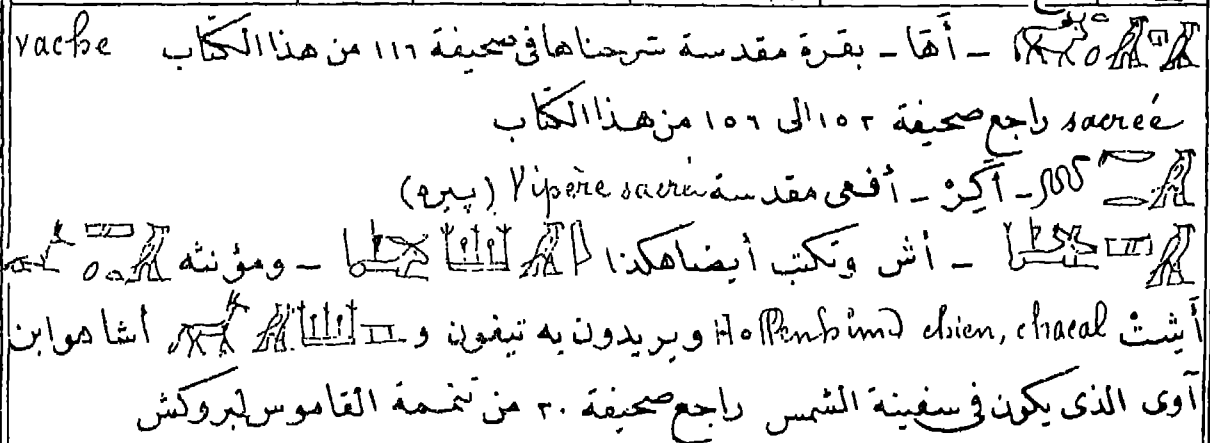 أَهَا ـ بقرة مقدسة شرحناها فى صحيفة ١١٦ من هذا الكتاب vache
sacrée راجع صحيفة ١٥٢ الى ١٥٦ من هذا الكتاب
ـ أَكِرْ ـ أفعى مقدسة Vipère sacrée (پيره)
ـ أش وتكتب أيضا هكذا ـ ومؤنثه
أَيشِتْ Höllenhund chien, chacal ويريدون به تيفون و أشا هو ابن
آوى الذى يكون فى سفينة الشمس راجع صحيفة ٢٠ من تتمة القاموس لبروكش